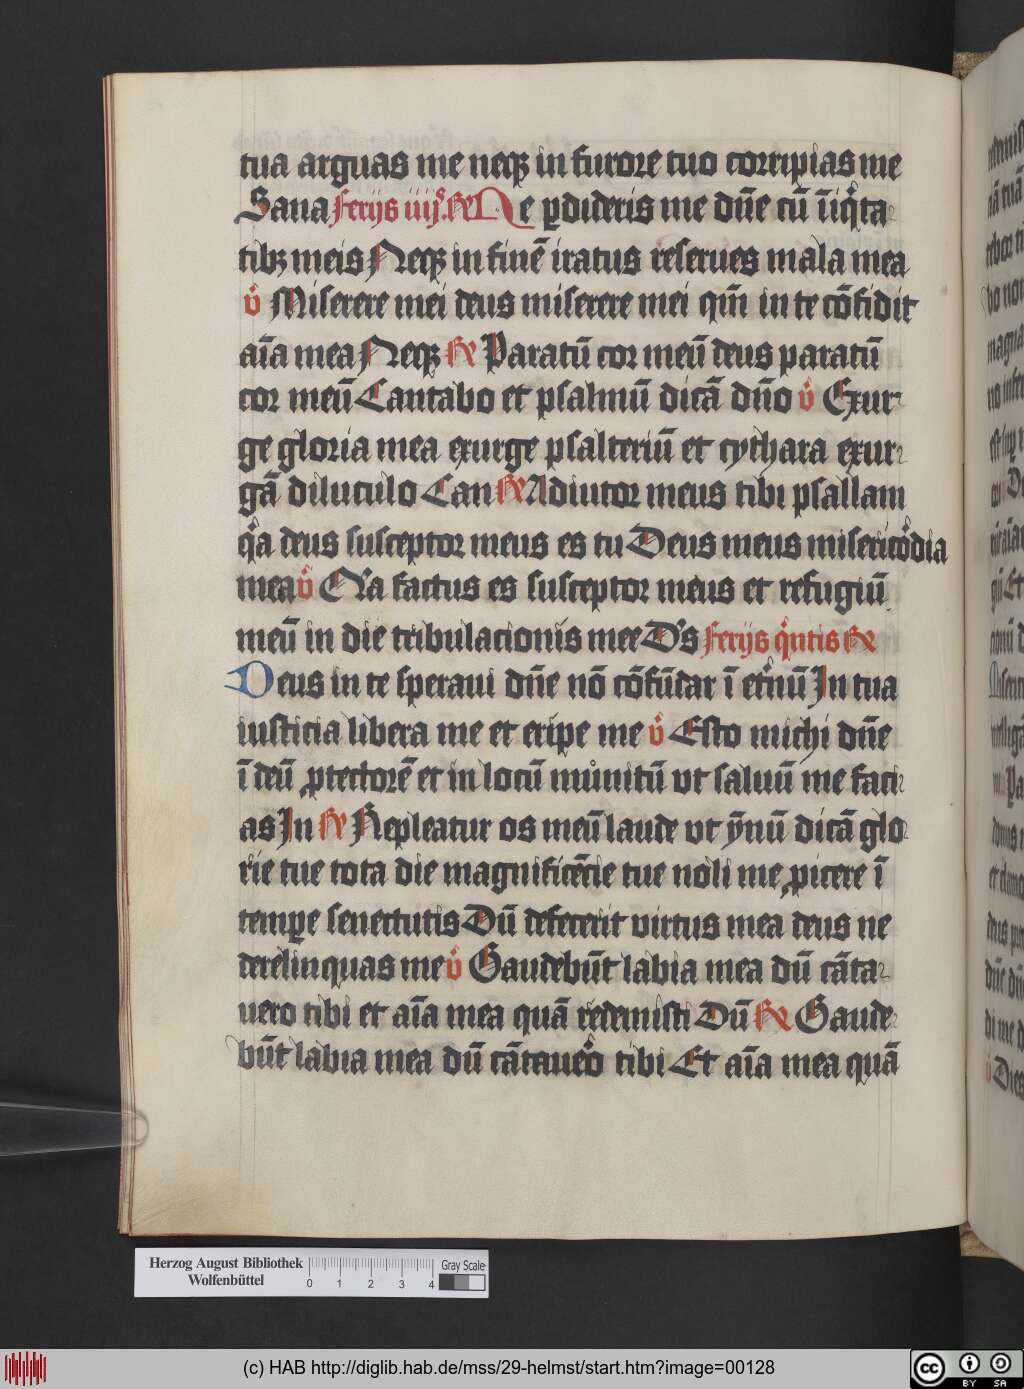 tua arguas me neqꝫ in furore tuo corripias me
Sana ferijs iiijˢ. ℞ Ne ꝑdideris me dn̄e cū īiqͥta
tibꝫ meis Neqꝫ in finē iratus reserues mala mea
v̊ Miserere mei deus miserere mei qm̄ in te cōfidit
aīa mea Neqꝫ ℞ Paratū cor meū deus paratū
cor meū Cantabo et psalmū dicā dn̄o v̊ Exur-
ge gloria mea exurge psalteriū et cythara exur-
gā diluculo Can ℞ Adiutor meus tibi psallam
qͥa deus susceptor meus es tu Deus meus misericoͬdia
mea v̊ Qͥa factus es susceptor meus et refugiū
meū in die tribulacionis mee Dˢs ferijs qͥntis ℞
Deus in te speraui dn̄e nō cōfūdar ī etͥnū In tua
iusticia libera me et eripe me v̊ Esto michi dn̄e
ī deū ꝓtectorē et in locū munitū vt saluū me faci-
as In ℞ Repleatur os meū laude vt ẏnū dicā glo-
rie tue tota die magnificēcie tue noli me ꝓicere ī
tempꝑe senectutis Dū defecerit virtus mea deus ne
derelinquas me v̊ Gaudebūt labia mea dū cāta-
uero tibi et aīa mea quā redemisti Dū ℞ Gaude-
būt labia mea dū cātaueͦo tibi Et aīa mea quā
Herzog August Bibliothek
Wolfenbüttel
0 1 2 3 4
Gray Scale
(c) HAB http://diglib.hab.de/mss/29-helmst/start.htm?image=00128
cc BY SA